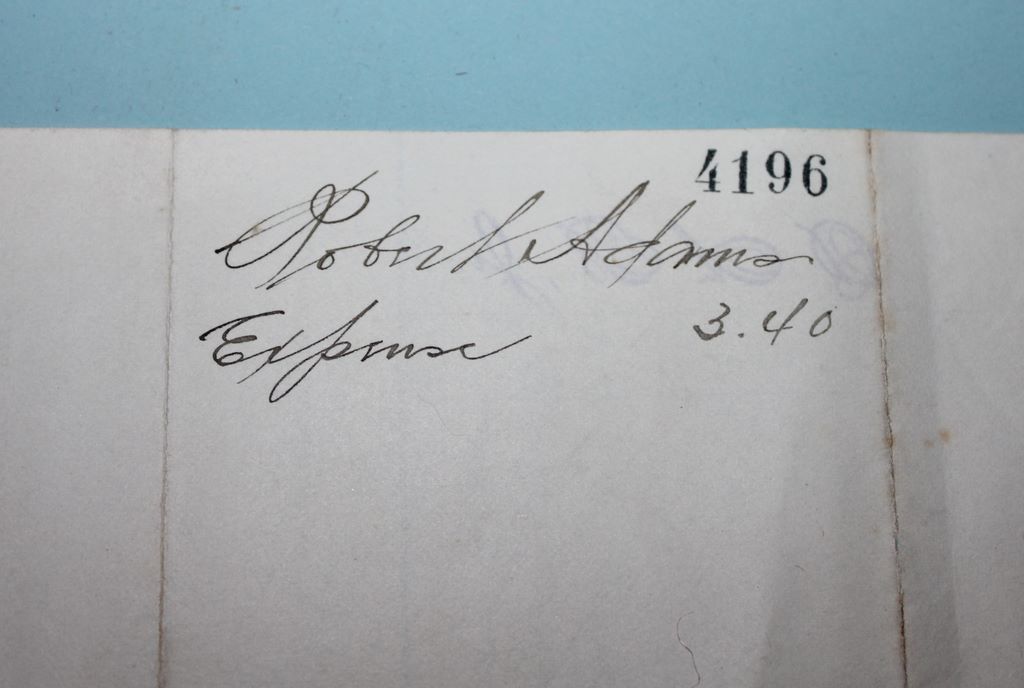 4196
Robert Adams
Expense 3.40